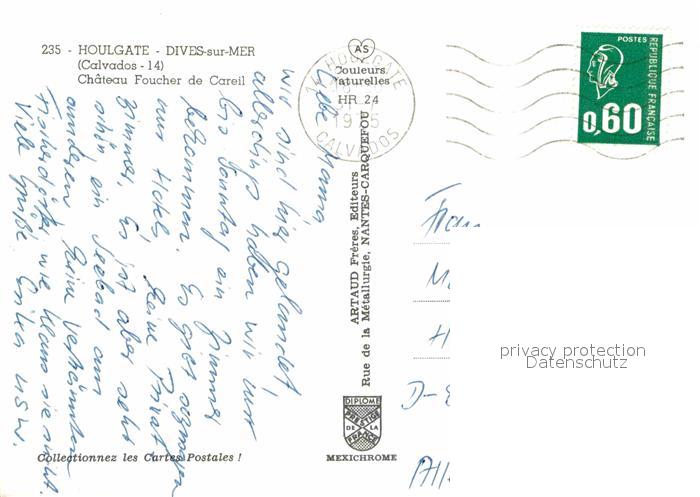 235 - HOULGATE - DIVES-sur-MER
(Calvados - 14)
Château Foucher de Careil
AS
Couleurs
Naturelles
HR 24
14 HOULGATE
CALVADOS
POSTES
RÉPUBLIQUE FRANÇAISE
0,60
Liebe Mama
wir sind hier gelandet,
allerdings haben wir erst
bis Sonntag ein Zimmer
bekommen. Es gibt
nur Hotels, keine Privat
zimmer. Es ist aber sehr
schön ein Seebad am
anderen. Keine
Fischerdörfer, wie Klaus sie sucht.
Viele Grüße Erika usw.
ARTAUD Frères, Editeurs
Rue de la Métallurgie, NANTES-CARQUEFOU
Fran
M
H
D-
privacy protection
Datenschutz
DIPLOME
PRESTIGE
DE LA
FRANCE
MEXICHROME
Collectionnez les Cartes Postales !